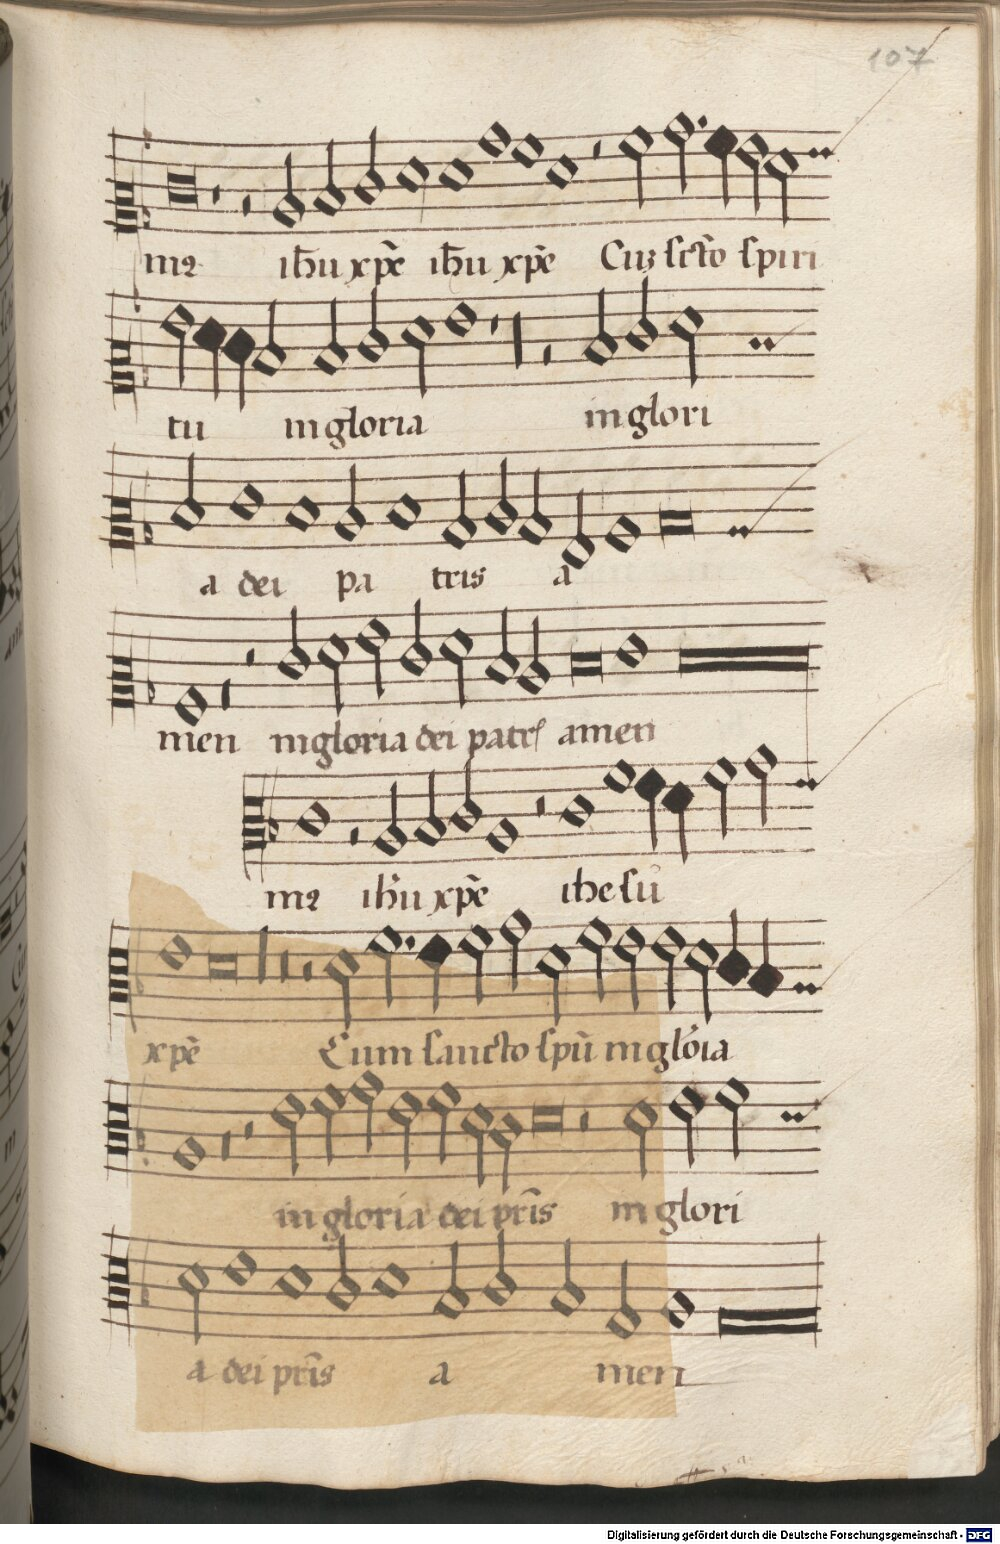 107
mꝰ ihu xpe ihu xpe Cuz scto spiri
tu in gloria in glori
a dei pa tris a
men in gloria dei patris amen
mꝰ ihu xpe ihesu
xpe Cum sancto spu in gloia
in gloria dei pris in glori
a dei pris a men
Digitalisierung gefördert durch die Deutsche Forschungsgemeinschaft - DFG